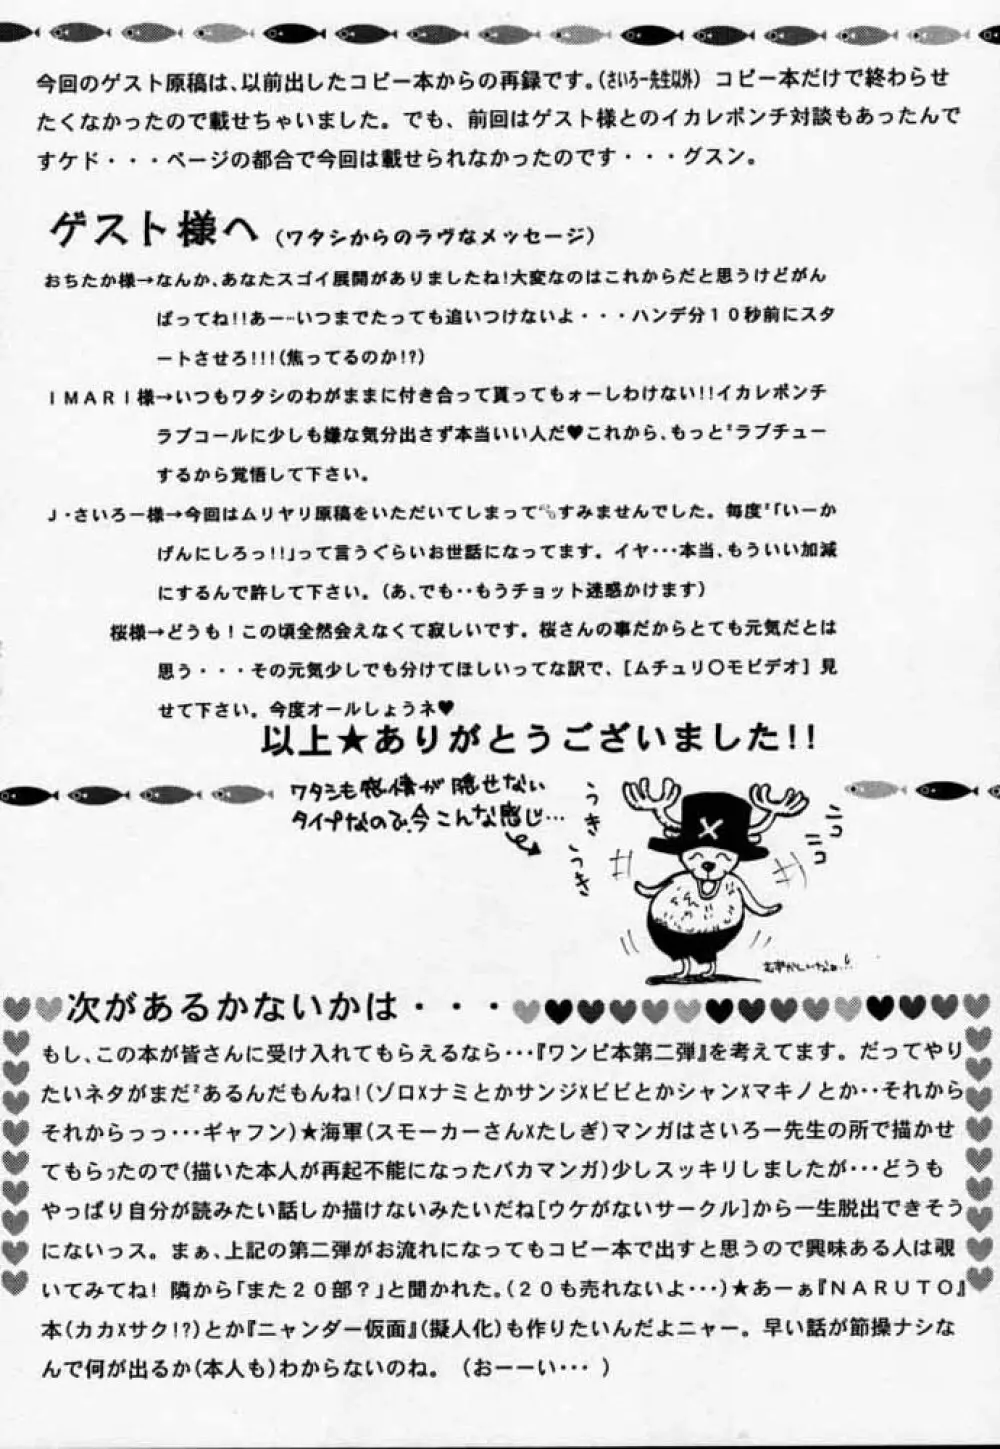 今回のゲスト原稿は、以前出したコピー本からの再録です。（さいろー先生以外）コピー本だけで終わらせ
たくなかったので載せちゃいました。でも、前回はゲスト様とのイカレポンチ対談もあったんで
すケド・・・ページの都合で今回は載せられなかったのです・・・グスン。
ゲスト様へ（ワタシからのラヴなメッセージ）
おちたか様→なんか、あなたスゴイ展開がありましたね！大変なのはこれからだと思うけどがん
ばってね！！あー…いつまでたっても追いつけないよ・・・ハンデ分１０秒前にスタ
ートさせろ！！！（焦ってるのか！？）
ＩＭＡＲＩ様→いつもワタシのわがままに付き合って貰ってもォーしわけない！！イカレポンチ
ラブコールに少しも嫌な気分出さず本当いい人だ♥これから、もっと²ラブチュー
するから覚悟して下さい。
Ｊ・さいろー様→今回はムリヤリ原稿をいただいてしまってすみませんでした。毎度²「いーか
げんにしろっ！！」って言うぐらいお世話になってます。イヤ・・・本当、もういい加減
にするんで許して下さい。（あ、でも・・もうチョット迷惑かけます）
桜様→どうも！この頃全然会えなくて寂しいです。桜さんの事だからとても元気だとは
思う・・・その元気少しでも分けてほしいってな訳で、［ムチュリ〇モビデオ］見
せて下さい。今度オールしょうネ♥
以上★ありがとうございました！！
ワタシも感情が隠せない
タイプなので、今こんな感じ…
うき
うき
ニコ
ニコ
むずかしいなぁ!!
次があるかないかは・・・
もし、この本が皆さんに受け入れてもらえるなら・・・『ワンピ本第二弾』を考えてます。だってやり
たいネタがまだ²あるんだもんね！（ゾロxナミとかサンジxビビとかシャンxマキノとか・・それから
それからっっ・・・ギャフン）★海軍（スモーカーさんxたしぎ）マンガはさいろー先生の所で描かせ
てもらったので（描いた本人が再起不能になったバカマンガ）少しスッキリしましたが・・・どうも
やっぱり自分が読みたい話しか描けないみたいだね［ウケがないサークル］から一生脱出できそう
にないっス。まぁ、上記の第二弾がお流れになってもコピー本で出すと思うので興味ある人は覗
いてみてね！隣から「また２０部？」と聞かれた。（２０も売れないよ・・・）★あーぁ『ＮＡＲＵＴＯ』
本（カカxサク！？）とか『ニャンダー仮面』（擬人化）も作りたいんだよニャー。早い話が節操ナシな
んで何が出るか（本人も）わからないのね。（おーーい・・・）